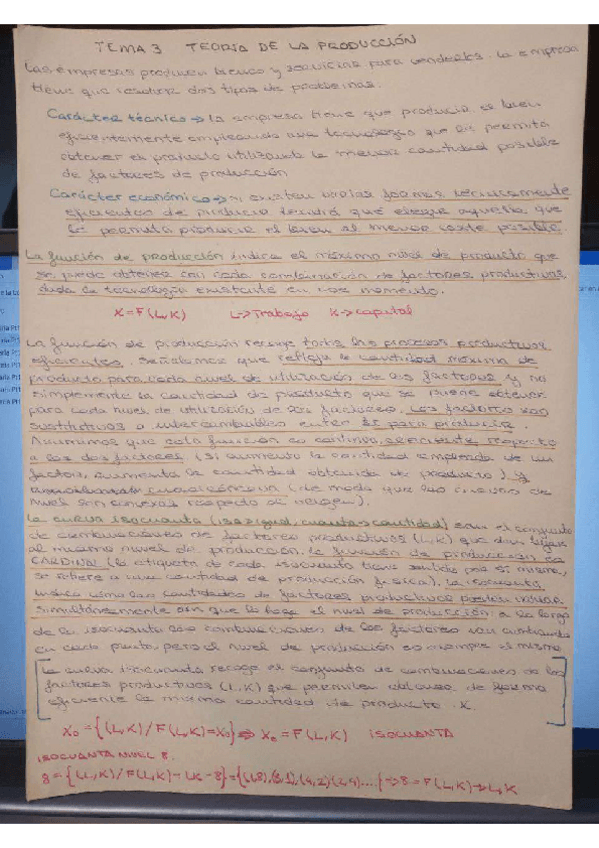 TEMA 3 TEORÍA DE LA PRODUCCIÓN
Las empresas producen bienes y servicios para venderlos. La empresa
tiene que resolver dos tipos de problemas:
Carácter técnico → la empresa tiene que producir el bien
eficientemente empleando una tecnología que le permita
obtener el producto utilizando la menor cantidad posible
de factores de producción
Carácter económico → si existen varias formas técnicamente
eficientes de producir tendrá que escoger aquella que
le permita producir el bien al menor coste posible.
La función de producción indica el máximo nivel de producto que
se puede obtener con cada combinación de factores productivos,
dada la tecnología existente en ese momento.
X=F(L,K) L→Trabajo K→capital
La función de producción recoge todos los procesos productivos
eficientes. Señalamos que refleja la cantidad máxima de
producto para cada nivel de utilización de los factores y no
simplemente la cantidad de producto que se puede obtener
para cada nivel de utilización de los factores. Los factores son
sustitutivos o intercambiables entre sí para producir.
Asumimos que esta función es continua, creciente respecto
a los dos factores (si aumenta la cantidad empleada de un
factor, aumenta la cantidad obtenida de producto) y
cuasicóncava (de modo que las curvas de
nivel son convexas respecto al origen).
La curva isocuanta (iso=igual, cuanta=cantidad) son el conjunto
de combinaciones de factores productivos (L,K) que dan lugar
al mismo nivel de producción. La función de producción es
CARDINAL (la etiqueta de cada isocuanta tiene sentido por sí misma,
se refiere a una cantidad de producción física). La isocuanta
indica cómo las cantidades de factores productivos pueden variar
simultáneamente sin que lo haga el nivel de producción: a lo largo
de la isocuanta las combinaciones de los factores van cambiando
en cada punto, pero el nivel de producción es siempre el mismo
La curva isocuanta recoge el conjunto de combinaciones de los
factores productivos (L,K) que permiten obtener de forma
eficiente la misma cantidad de producto X.
X₀={(L,K)/F(L,K)=X₀} ⇒ X₀=F(L,K) ISOCUANTA
ISOCUANTA NIVEL 8.
8={(L,K)/F(L,K)=LK=8}={(1,8),(8,1),(4,2),(2,4)....}→8=F(L,K)→L,K